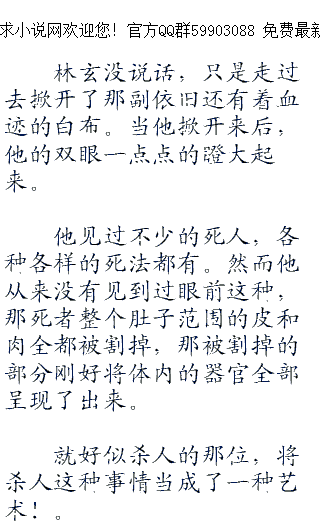 求小说网欢迎您！官方QQ群59903088 免费最新
林玄没说话，只是走过
去掀开了那副依旧还有着血
迹的白布。当他掀开来后，
他的双眼一点点的瞪大起
来。
他见过不少的死人，各
种各样的死法都有。然而他
从来没有见到过眼前这种，
那死者整个肚子范围的皮和
肉全都被割掉，那被割掉的
部分刚好将体内的器官全部
呈现了出来。
就好似杀人的那位，将
杀人这种事情当成了一种艺
术！。